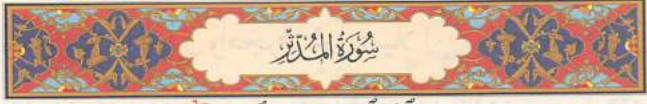 سُورَةُ المُدَّثِّرِ